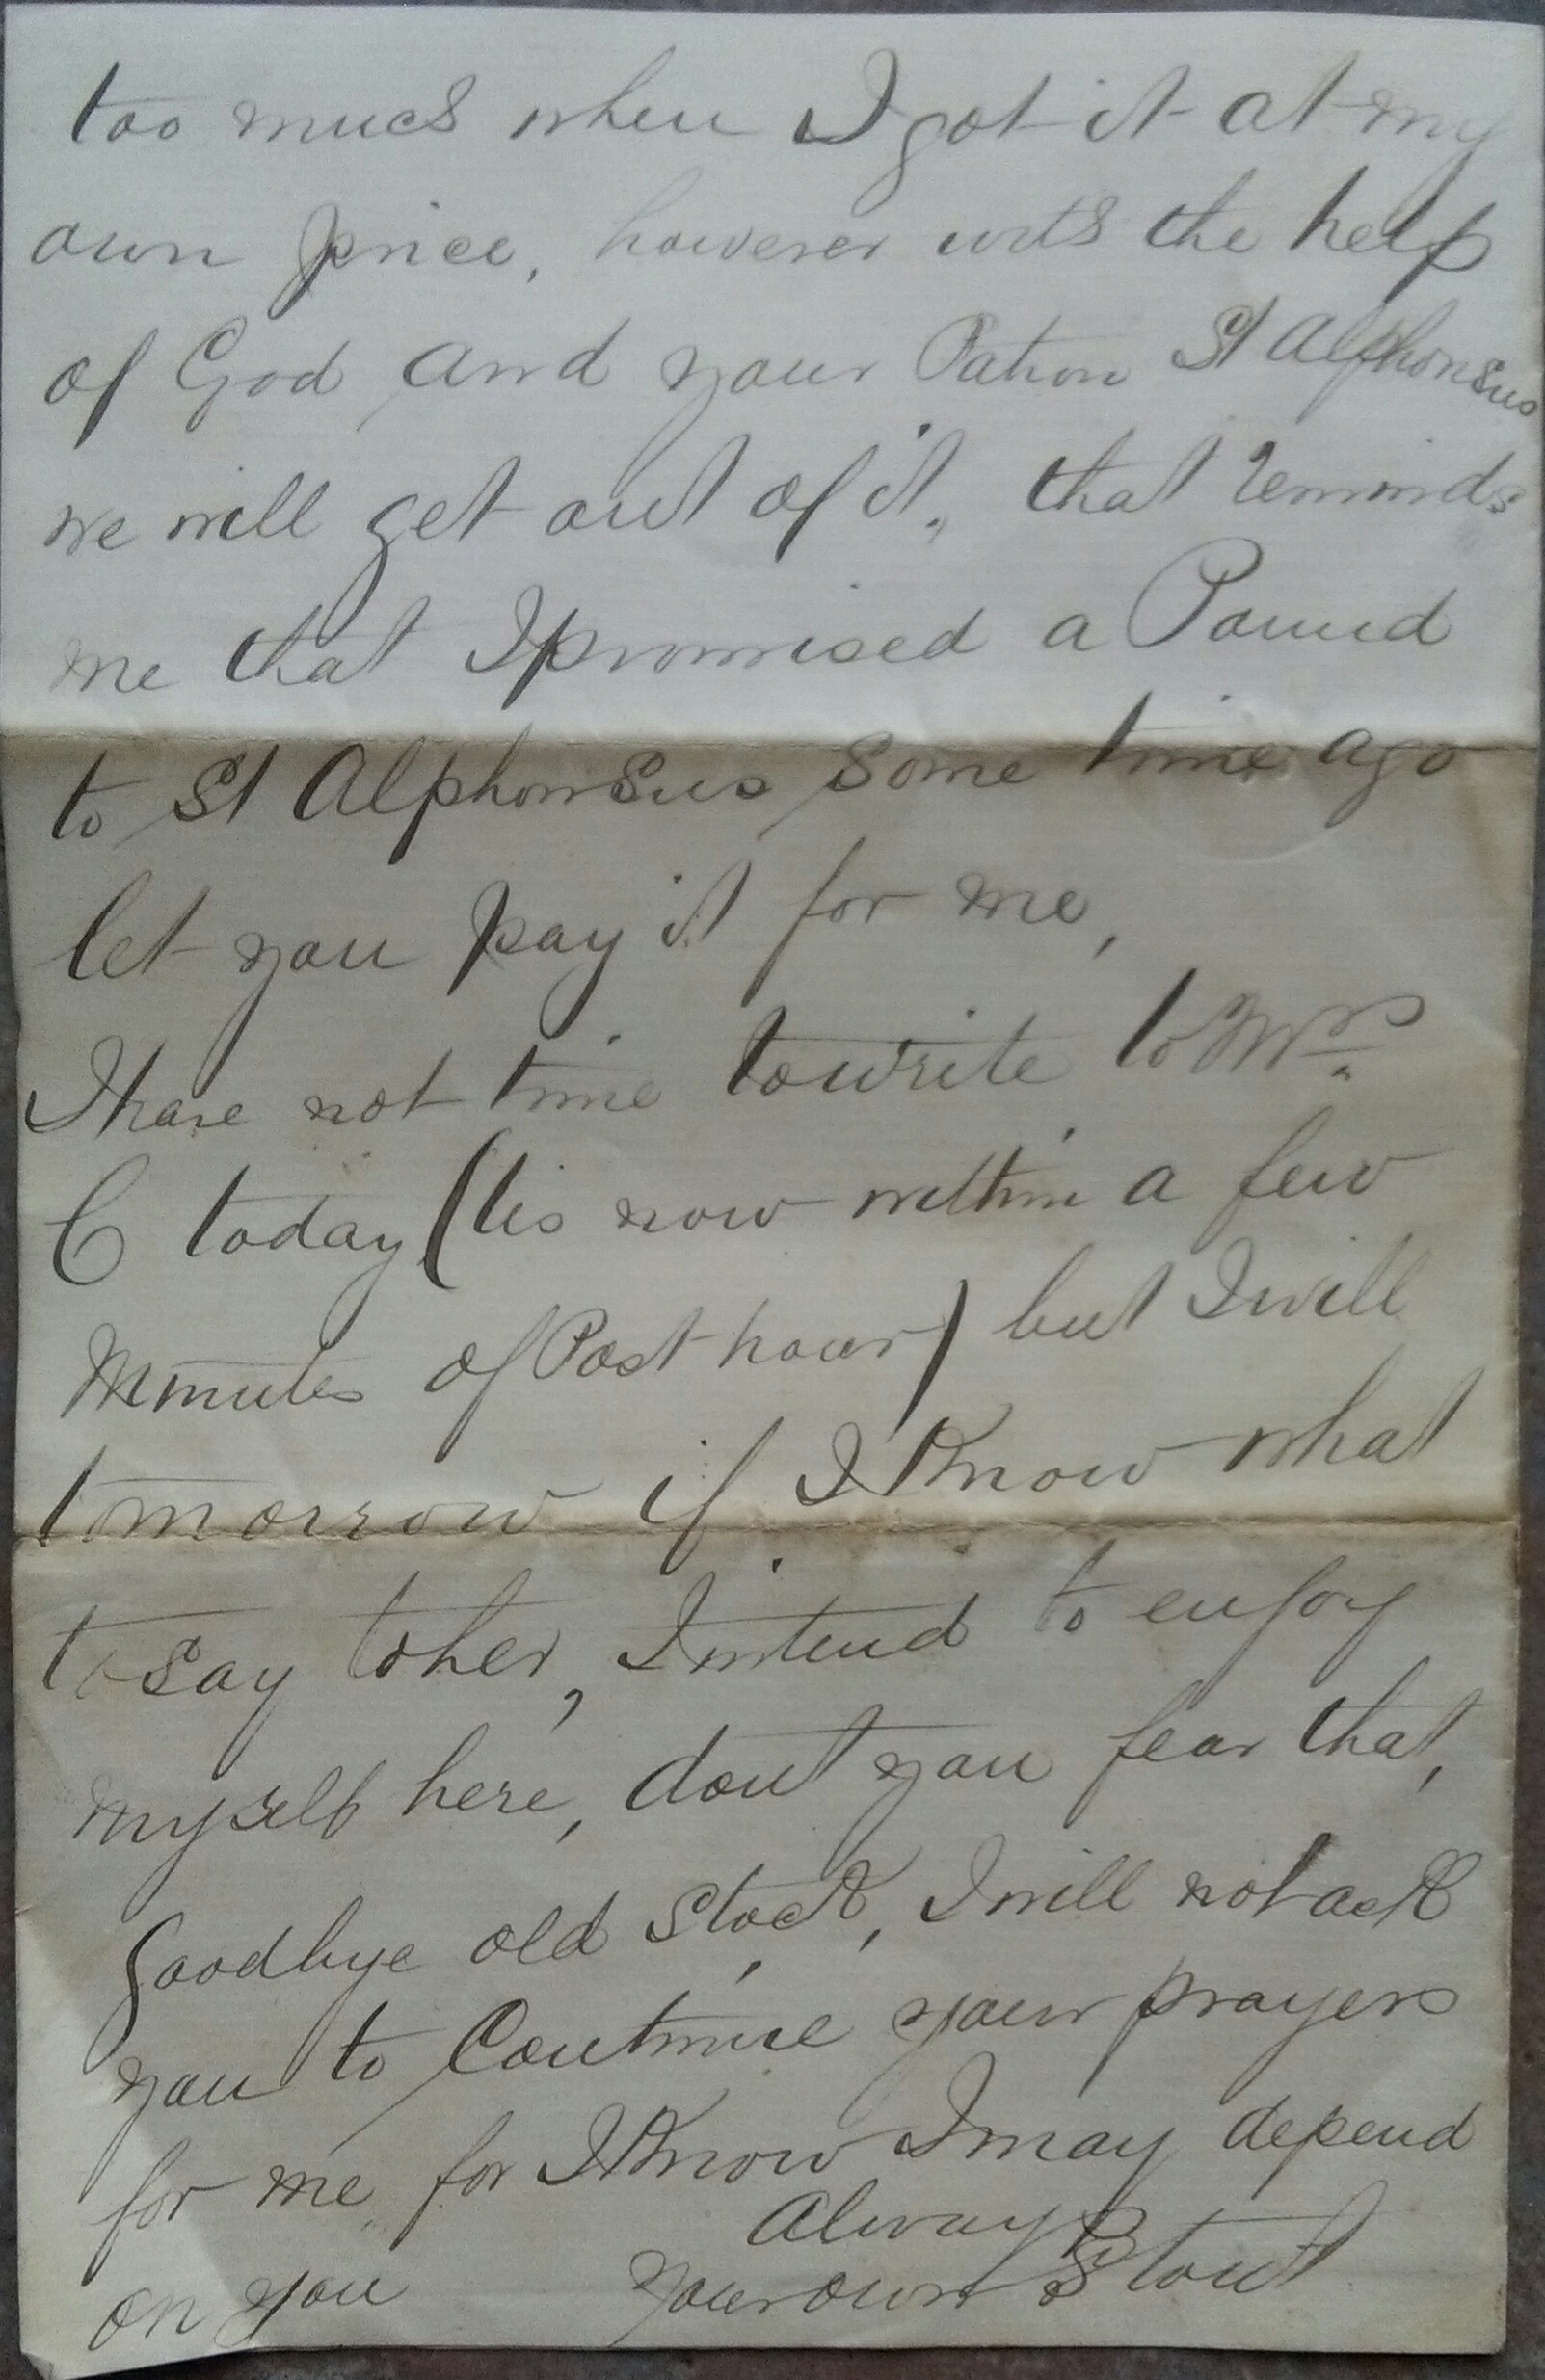 too much when I got it at my
own price, however with the help
of God and your Patron St Alphonsus
we will get out of it, that reminds
me that I promised a Pound
to St Alphonsus some time ago
let you pay it for me,
I have not time to write to Mrs
C today (tis now within a few
Minutes of Post hour) but I will
tomorrow if I Know what
to say to her, I intend to enjoy
myself here, dont you fear that,
Goodbye old Stock, I will not ask
you to Continue your prayers
for me for I Know I may depend
on you Always
your own Stout